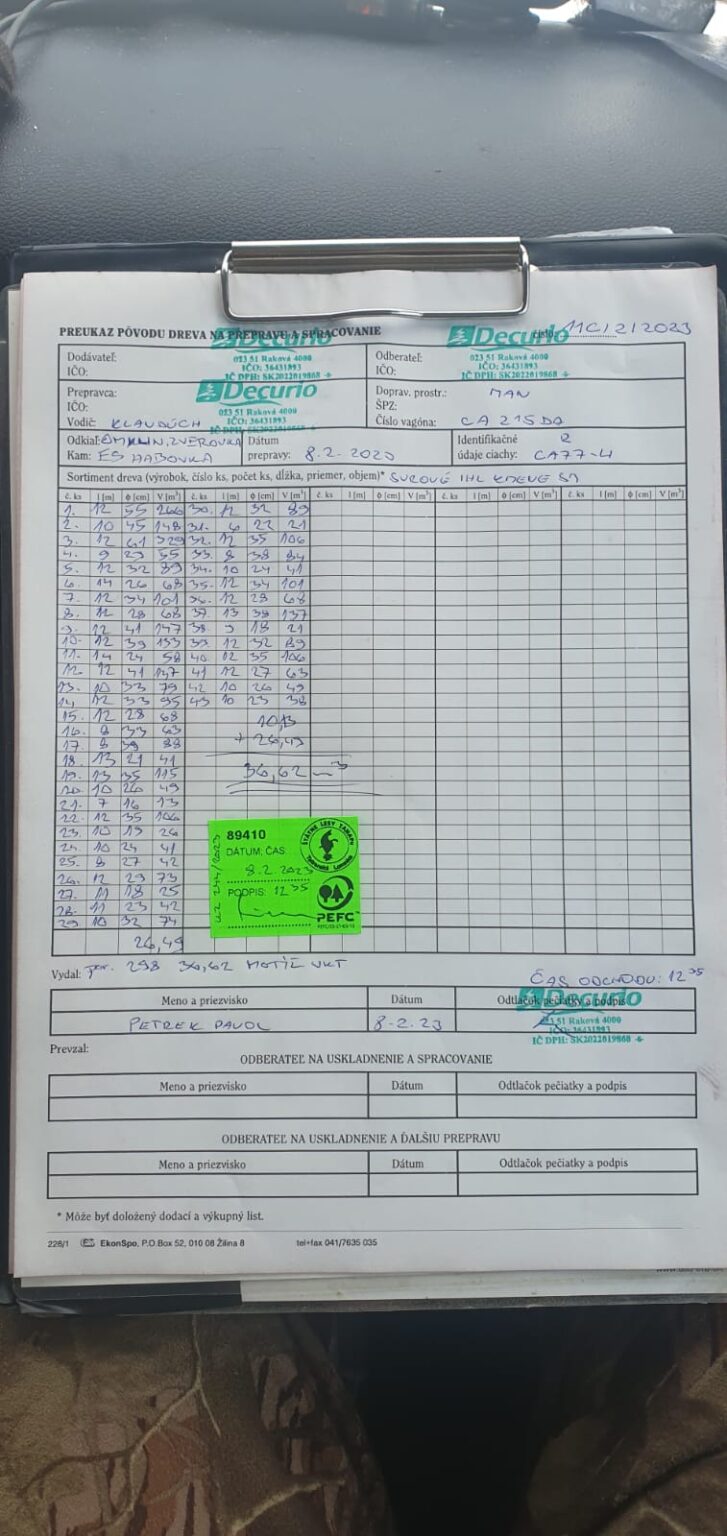 PREUKAZ PÔVODU DREVA NA PREPRAVU A SPRACOVANIE
Decurio
číslo: 11C/2/2023
Dodávateľ:
IČO:
023 51 Raková 4000
IČO: 36431893
IČ DPH: SK2022019868
Odberateľ:
IČO:
023 51 Raková 4000
IČO: 36431893
IČ DPH: SK2022019868
Prepravca:
IČO:
Vodič: KLAUDÚCH
Decurio
023 51 Raková 4000
IČO: 36431893
IČ DPH: SK2022019868
Doprav. prostr.: MAN
ŠPZ:
Číslo vagóna: CA 215 DO
Odkiaľ: ZVEROVKA
Kam: ES HABOVKA
Dátum
prepravy: 8.2.2023
Identifikačné
údaje ciachy: CA77-4
Sortiment dreva (výrobok, číslo ks, počet ks, dĺžka, priemer, objem)* SUROVÉ IHL
č. ks l [m] ϕ [cm] V [m³] č. ks l [m] ϕ [cm] V [m³] č. ks l [m] ϕ [cm] V [m³] č. ks l [m] ϕ [cm] V [m³] č. ks l [m] ϕ [cm] V [m³]
1. 12 55 266 30. 12 32 89
2. 10 45 148 31. 6 22 21
3. 12 61 329 32. 12 35 106
4. 9 29 55 33. 8 38 84
5. 12 32 89 34. 10 24 41
6. 14 26 68 35. 12 34 101
7. 12 34 101 36. 12 28 68
8. 12 28 68 37 13 38 137
9. 12 41 147 38 9 18 21
10. 12 39 133 39 12 32 89
11. 14 24 58 40 12 35 106
12. 12 41 147 41 12 27 63
13. 10 33 79 42 10 26 49
14 12 33 95 43 10 23 38
15. 12 28 68 10,13
16. 8 33 63
17. 8 39 88 + 26,49
18. 13 21 41
19. 13 35 115 36,62 m³
20. 10 26 49
21. 7 16 13
22. 12 35 106
23. 10 19 26
24. 10 24 41
25. 8 27 42
26. 12 29 73
27. 11 18 25
28. 11 23 42
29. 10 32 74
26,49
89410
DÁTUM, ČAS
8.2.2023
PODPIS: 12 35
ŠTÁTNE LESY TANAPU
Tatranská Lomnica
PEFC
Vydal: 298 36,62
ČAS ODCHODU: 12 35
Meno a priezvisko Dátum Odtlačok pečiatky a podpis
PETREK PAVOL 8.2.23
Decurio
023 51 Raková 4000
IČO: 36431893
IČ DPH: SK2022019868
Prevzal:
ODBERATEĽ NA USKLADNENIE A SPRACOVANIE
Meno a priezvisko Dátum Odtlačok pečiatky a podpis
ODBERATEĽ NA USKLADNENIE A ĎALŠIU PREPRAVU
Meno a priezvisko Dátum Odtlačok pečiatky a podpis
* Môže byť doložený dodací a výkupný list.
228/1 EkonSpo, P.O.Box 52, 010 08 Žilina 8 tel+fax 041/7635 035